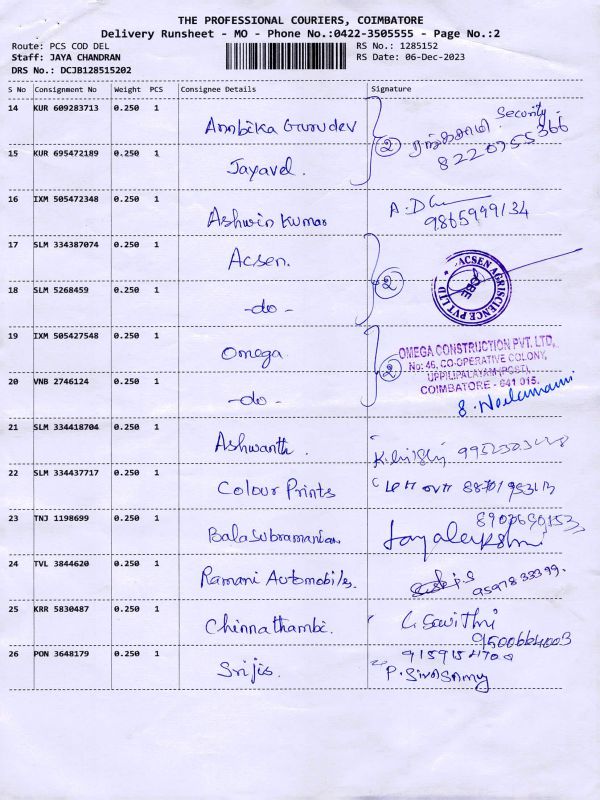 THE PROFESSIONAL COURIERS, COIMBATORE
Delivery Runsheet - MO - Phone No.:0422-3505555 - Page No.:2
Route: PCS COD DEL
RS No.: 1285152
Staff: JAYA CHANDRAN
RS Date: 06-Dec-2023
DRS No.: DCJB128515202
S No Consignment No Weight PCS Consignee Details Signature
14 KUR 609283713 0.250 1 Ambika Gurudev Security
15 KUR 695472189 0.250 1 Jayavel. 2
16 IXM 505472348 0.250 1 Ashwin Kumar 9865999134
17 SLM 334387074 0.250 1 Acsen. ACSEN AGRISCIENCE PVT LTD
18 SLM 5268459 0.250 1 -do- 2
19 IXM 505427548 0.250 1 Omega OMEGA CONSTRUCTION PVT. LTD,
No: 46, CO-OPERATIVE COLONY,
UPPILIPALAYAM (POST),
COIMBATORE - 641 015.
20 VNB 2746124 0.250 1 -do- 2
21 SLM 334418704 0.250 1 Ashwanth.
22 SLM 334437717 0.250 1 Colour Prints
23 TNJ 1198699 0.250 1 Balasubramanian Jayalakshmi
24 TVL 3844620 0.250 1 Ramani Automobiles.
25 KRR 5830487 0.250 1 Chinnathambi. 9500664003
26 PON 3648179 0.250 1 Srijis. P. Sivasamy